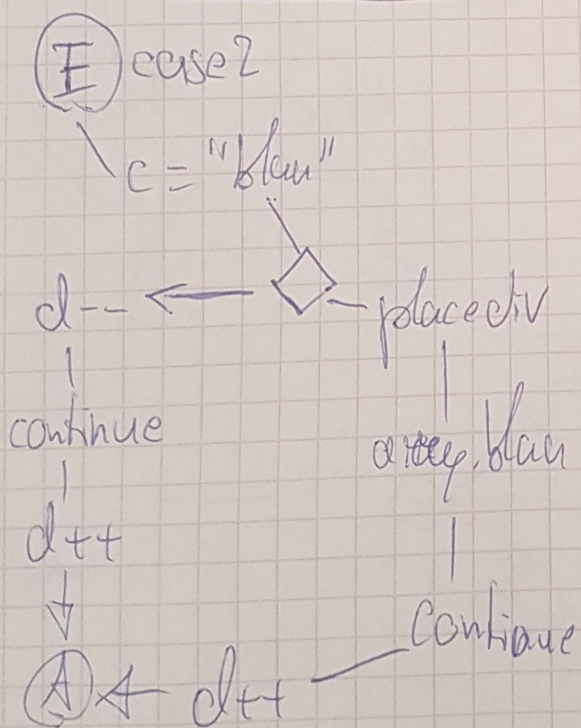 E case2
c = "blau"
d-- placediv
continue
array.blau
d++
continue
A d++